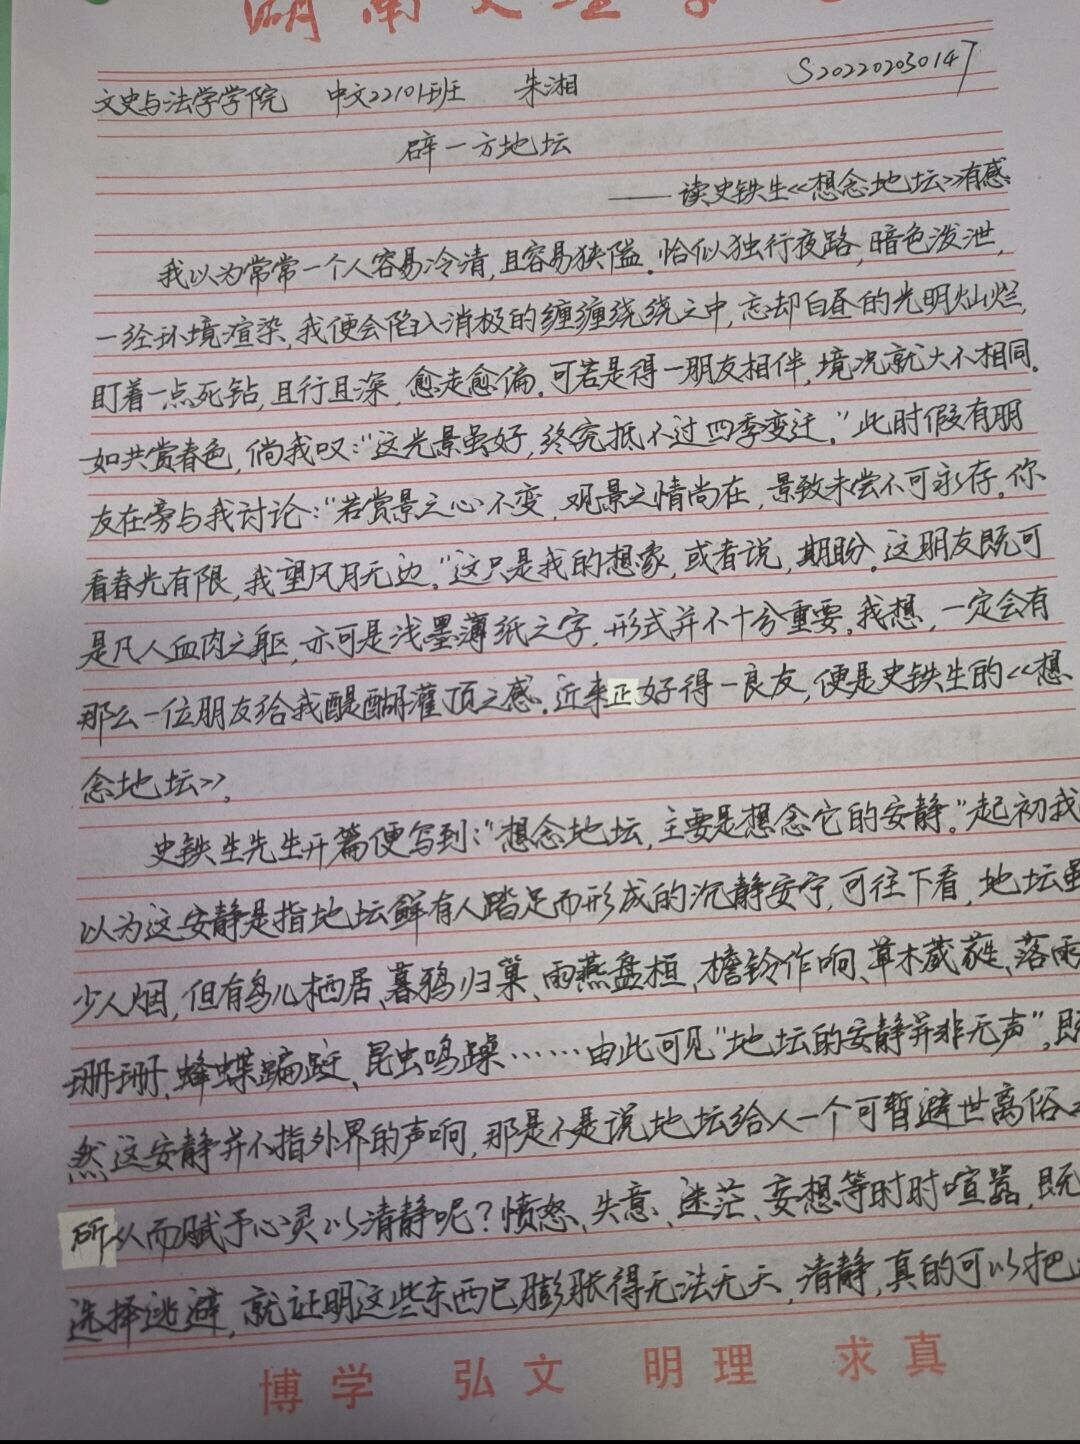 湖南文理学
文史与法学学院 中文22101班 朱湘 S202202030147
辟一方地坛
——读史铁生《想念地坛》有感
我以为常常一个人容易冷清,且容易狭隘。恰似独行夜路,暗色泼泄,
一经环境渲染,我便会陷入消极的缠缠绕绕之中,忘却白昼的光明灿烂,
盯着一点死钻,且行且深,愈走愈偏。可若是得一朋友相伴,境况就大不相同。
如共赏春色,倘我叹:“这光景虽好,终究抵不过四季变迁。”此时假有朋
友在旁与我讨论:“若赏景之心不变,观景之情尚在,景致未尝不可永存。你
看春光有限,我望风月无边。”这只是我的想象,或者说,期盼。这朋友既可
是凡人血肉之躯,亦可是浅墨薄纸之字,形式并不十分重要。我想,一定会有
那么一位朋友给我醍醐灌顶之感。近来正好得一良友,便是史铁生的《想
念地坛》。
史铁生先生开篇便写到:“想念地坛,主要是想念它的安静。”起初我
以为这安静是指地坛鲜有人踏足而形成的沉静安宁,可往下看,地坛虽
少人烟,但有鸟儿栖居、暮鸦归巢、雨燕盘桓、檐铃作响、草木葳蕤、落雨
珊珊、蜂蝶蹁跹、昆虫鸣躁……由此可见“地坛的安静并非无声”,既
然这安静并不指外界的声响,那是不是说地坛给人一个可暂避世离俗
所从而赋予心灵以清静呢?愤怒、失意、迷茫、妄想等时时喧嚣,既
选择逃避,就证明这些东西已膨胀得无法无天,清静,真的可以把
博学 弘文 明理 求真